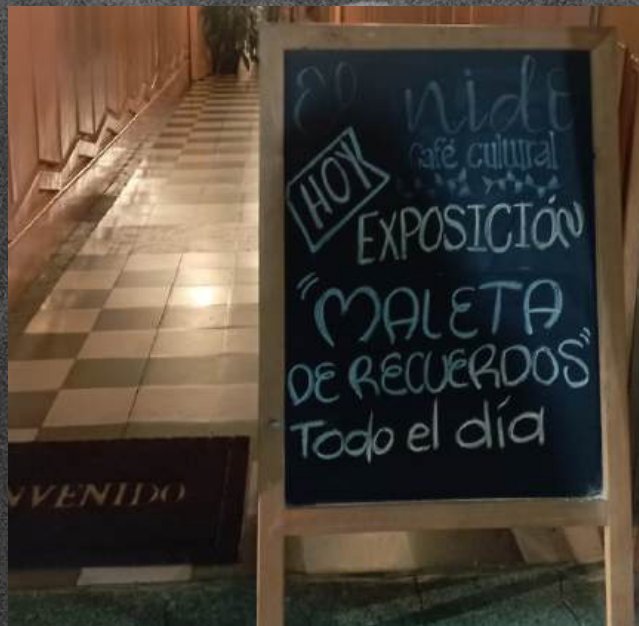 El nido
Café cultural
HOY
EXPOSICIÓN
"MALETA
DE RECUERDOS"
Todo el día
NVENIDO